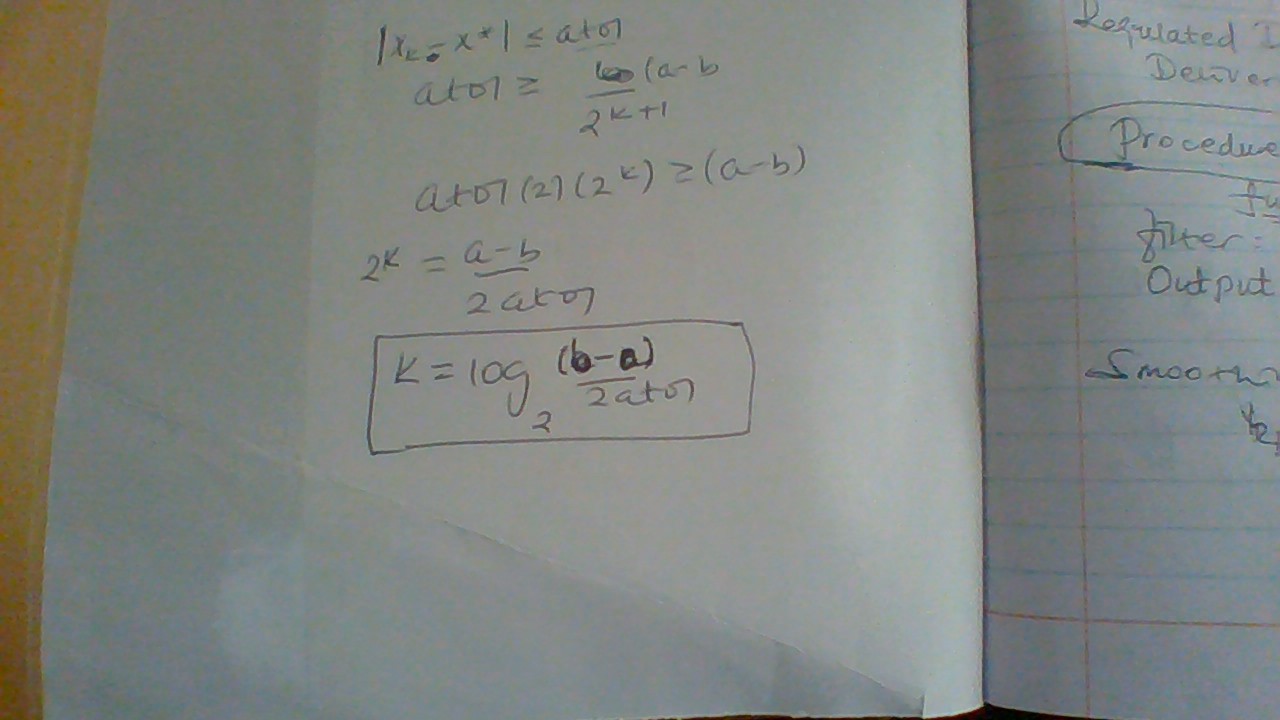 |xₖ - x*| ≤ atol
atol ≥ (a-b / 2^k+1
atol (2) (2^k) ≥ (a-b)
2^k = a-b / 2 atol
K = log₂ (b-a) / 2atol
Regulated
Procedure
filter:
Output